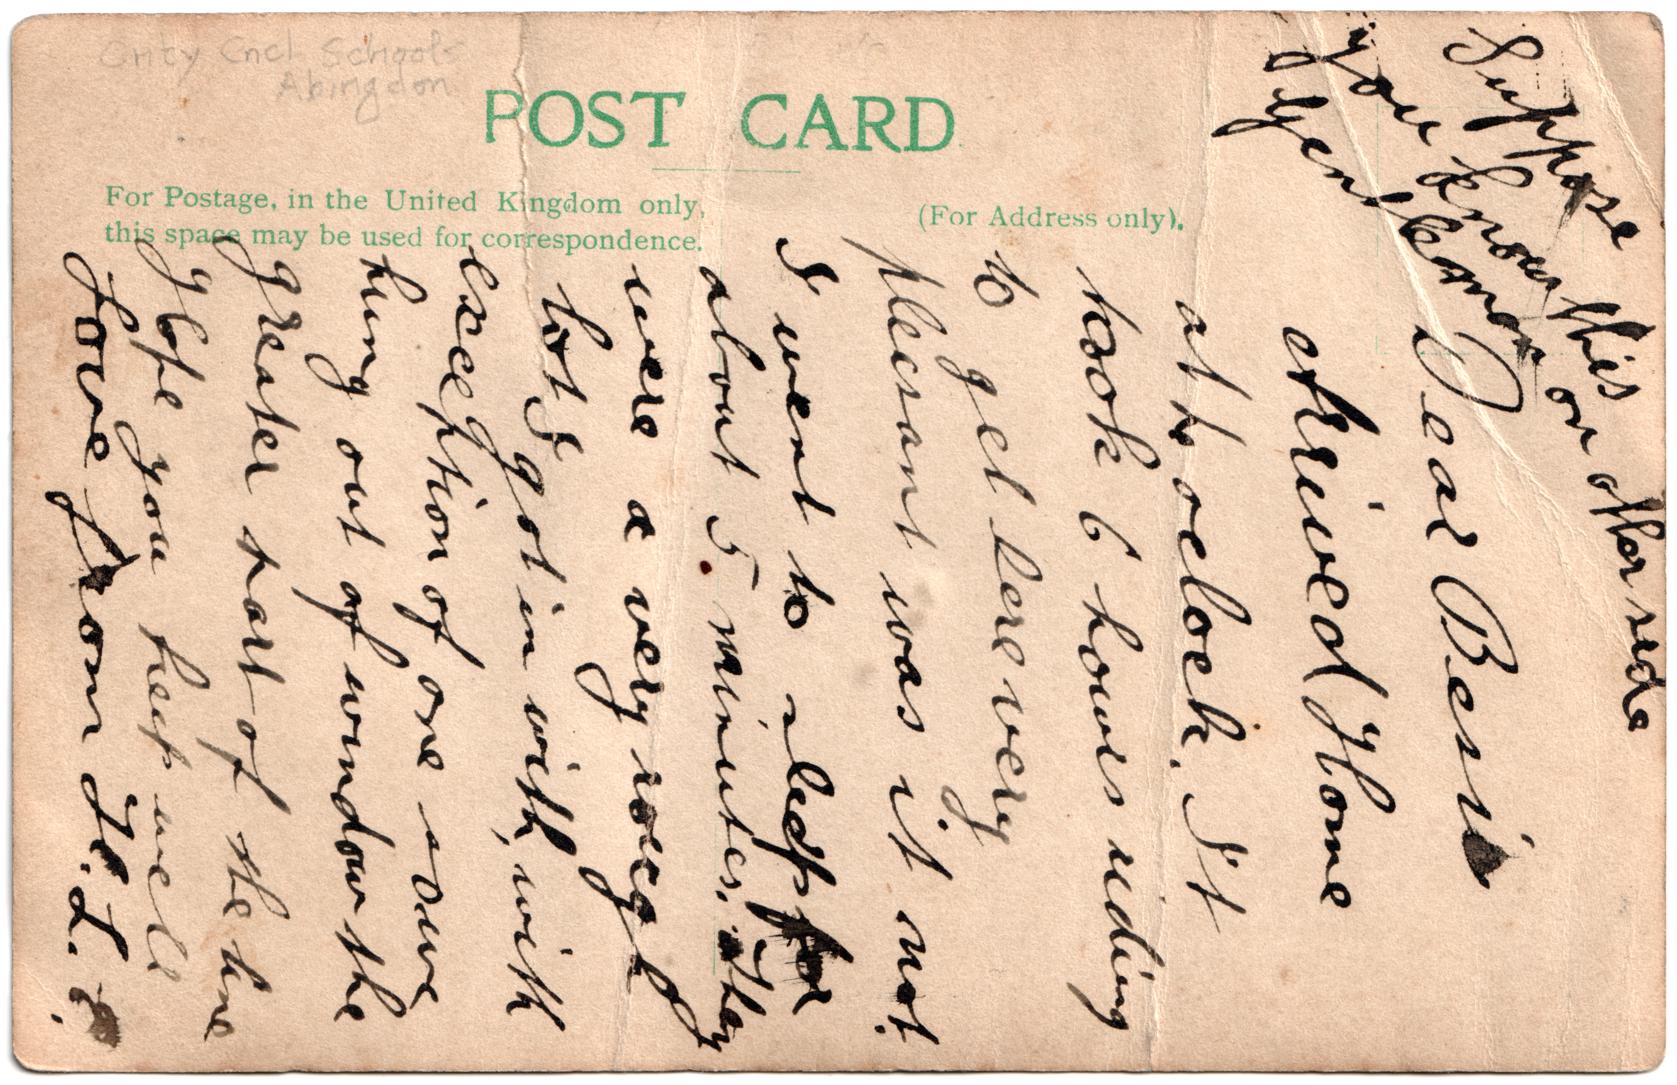 Cnty Cncl Schools
Abingdon
POST CARD
For Postage, in the United Kingdom only,
this space may be used for correspondence.
(For Address only).
Suppose
you know this on other side
Gent
Dear Bessie
Arrived Home
at ho oclock. It
took 6 hours riding
to get here very
plecsant was it not.
I went to sleep for
about 5 minutes. They
were a very rough
lot I got in with, with
exception of one some
hung out of window the
greater part of the time
Hope you keep well
love from H. L.